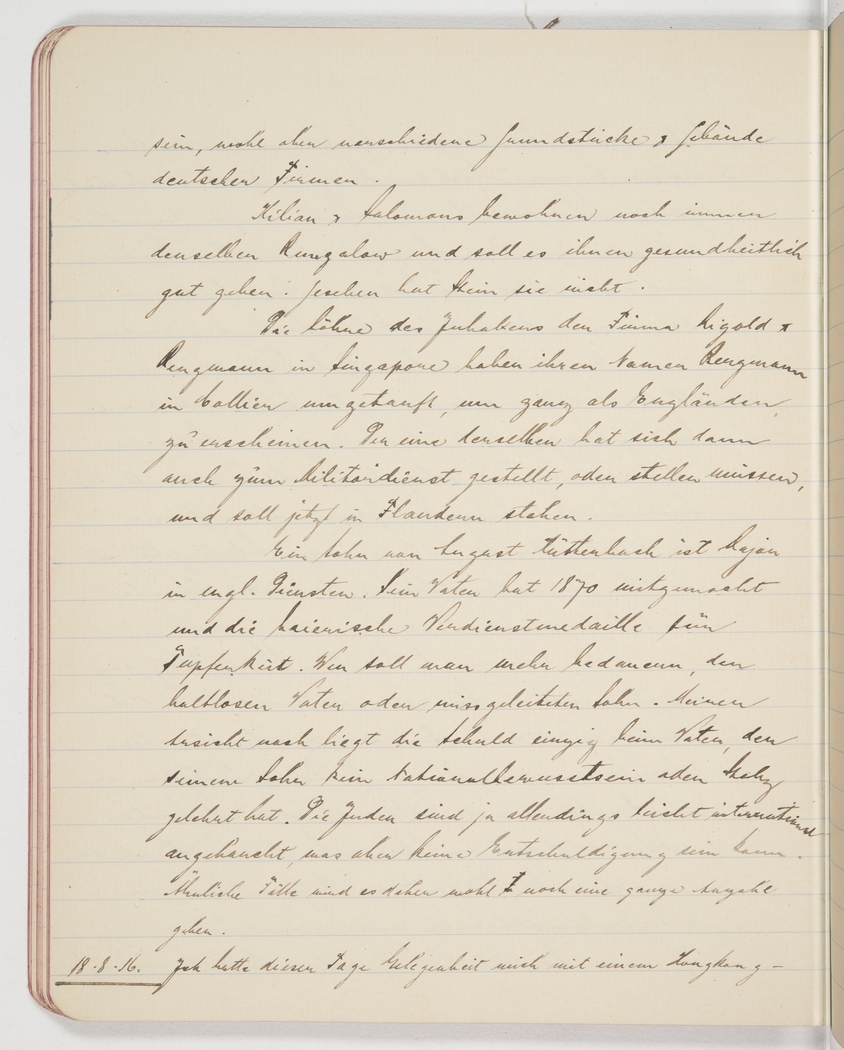 sein, wohl aber verschiedene Grundstücke & Gebäude
deutscher Firmen.
Kilian & Salomons bewohnen noch immer
denselben Bungalow und soll es ihnen gesundheitlich
gut gehen. Gesehen hat Hein sie nicht.
Die Söhne des Inhabers der Firma Rigold &
Bergmann in Singapore haben ihren Namen Bergmann
in Collier umgetauft, um ganz als Engländer
zu erscheinen. Der eine derselben hat sich dann
auch zum Militärdienst gestellt, oder stellen müssen,
und soll jetzt in Flandern stehen.
Ein Sohn von August Hüttenbach ist Major
in engl. Diensten. Sein Vater hat 1870 mitgemacht
und die baierische Verdienstmedaille für
Tapferkeit. Wen soll man mehr bedauern, den
haltlosen Vater oder missgeleiteten Sohn. Meiner
Ansicht nach liegt die Schuld einzig beim Vater, der
seinem Sohn kein Nationalbewusstsein oder Stolz
gelehrt hat. Die Juden sind ja allerdings leicht international
angehaucht, was aber keine Entschuldigung sein kann.
Ähnliche Fälle wird es daher wohl noch eine ganze Anzahl
geben.
18.8.16. Ich hatte dieser Tage Gelegenheit mich mit einem Hongkong-